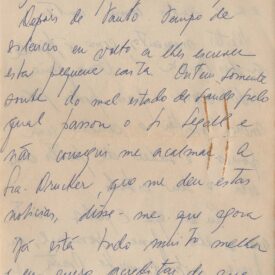 Depois de tanto tempo de
silencio eu volto a lhes escrever
esta pequena carta. Ontem, somente
soube do mal estado de saude pelo
qual passou o S. Segall e
não consegui me acalmar. A
Sra. Drucker, que me deu estas
noticias, disse-me que agora
já está tudo muito melhor
e eu quero acreditar de que